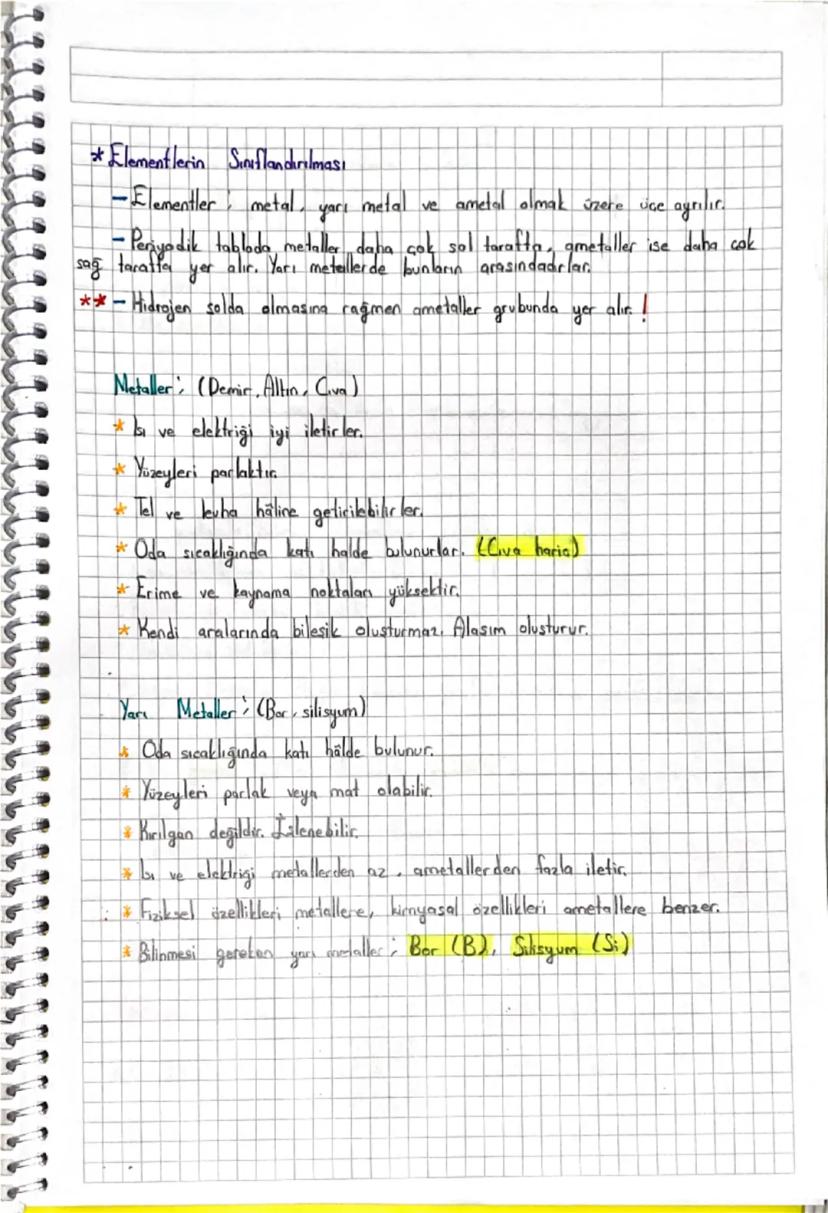 * Elementlerin Sınıflandırılması
- Elementler ; metal, yarı metal ve ametal olmak üzere üçe ayrılır.
- Periyodik tabloda metaller daha çok sol tarafta, ametaller ise daha çok
sağ tarafta yer alır. Yarı metallerde bunların arasındadırlar.
** - Hidrojen solda olmasına rağmen ametaller grubunda yer alır. !
Metaller ; (Demir, Altın, Cıva)
* Isı ve elektriği iyi iletirler.
* Yüzeyleri parlaktır.
* Tel ve levha hâline getirilebilirler.
* Oda sıcaklığında katı halde bulunurlar. (Cıva hariç)
* Erime ve kaynama noktaları yüksektir.
* Kendi aralarında bileşik oluşturmaz. Alaşım oluşturur.
Yarı Metaller ; (Bor, silisyum)
* Oda sıcaklığında katı hâlde bulunur.
* Yüzeyleri parlak veya mat olabilir.
* Kırılgan değildir. İşlenebilir.
* Isı ve elektriği metallerden az, ametallerden fazla iletir.
* Fiziksel özellikleri metallere, kimyasal özellikleri ametallere benzer.
* Bilinmesi gereken yarı metaller ; Bor (B), Silisyum (Si)